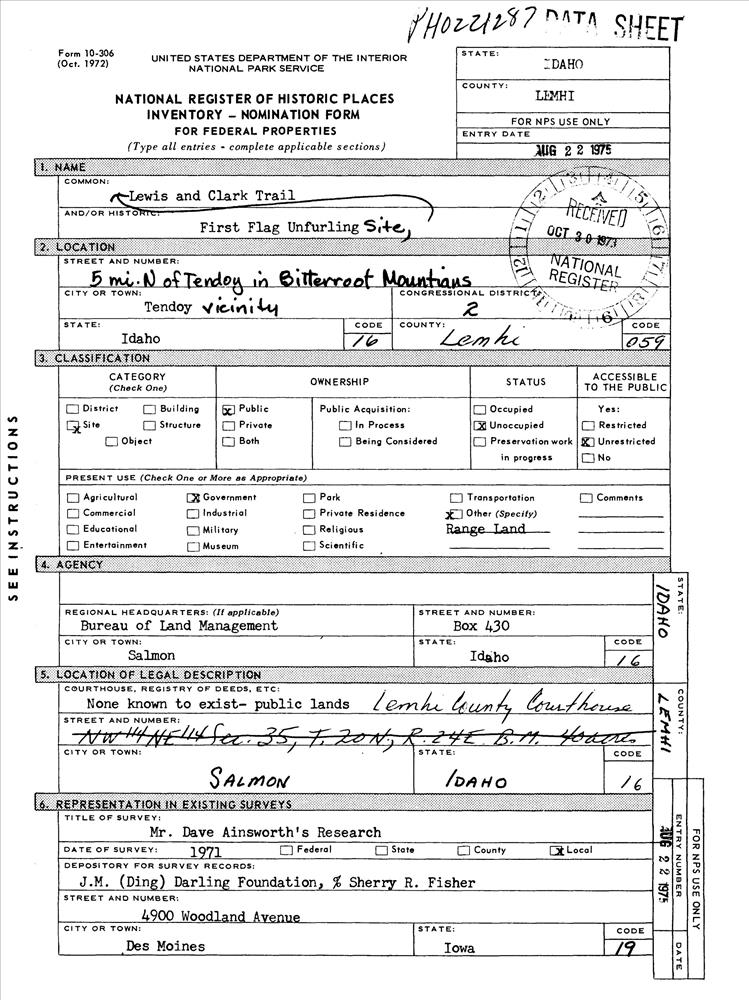 PH0221287 DATA SHEET
Form 10-306
(Oct. 1972)
UNITED STATES DEPARTMENT OF THE INTERIOR
NATIONAL PARK SERVICE
NATIONAL REGISTER OF HISTORIC PLACES
INVENTORY – NOMINATION FORM
FOR FEDERAL PROPERTIES
(Type all entries - complete applicable sections)
STATE:
IDAHO
COUNTY:
LEMHI
FOR NPS USE ONLY
ENTRY DATE
AUG 22 1975
1. NAME
COMMON:
Lewis and Clark Trail
AND/OR HISTORIC:
First Flag Unfurling Site,
RECEIVED
OCT 30 1973
NATIONAL
REGISTER
2. LOCATION
STREET AND NUMBER:
5 mi. N of Tendoy in Bitterroot Mountians
CITY OR TOWN:
Tendoy vicinity
CONGRESSIONAL DISTRICT
2
STATE:
Idaho
CODE
16
COUNTY:
Lemhi
CODE
059
3. CLASSIFICATION
CATEGORY
(Check One)
OWNERSHIP
STATUS
ACCESSIBLE
TO THE PUBLIC
District Building
Site Structure
Object
Public
Private
Both
Public Acquisition:
In Process
Being Considered
Occupied
Unoccupied
Preservation work
in progress
Yes:
Restricted
Unrestricted
No
PRESENT USE (Check One or More as Appropriate)
Agricultural Government Park Transportation Comments
Commercial Industrial Private Residence Other (Specify)
Educational Military Religious Range Land
Entertainment Museum Scientific
SEE INSTRUCTIONS
4. AGENCY
REGIONAL HEADQUARTERS: (If applicable)
Bureau of Land Management
STREET AND NUMBER:
Box 430
CITY OR TOWN:
Salmon
STATE:
Idaho
CODE
16
STATE:
IDAHO
5. LOCATION OF LEGAL DESCRIPTION
COURTHOUSE, REGISTRY OF DEEDS, ETC:
None known to exist- public lands Lemhi County Courthouse
STREET AND NUMBER:
NW 1/4 NE 1/4 Sec. 35, T. 20N, R. 24E B.M. 40 acres
CITY OR TOWN:
SALMON
STATE:
IDAHO
CODE
16
COUNTY:
LEMHI
6. REPRESENTATION IN EXISTING SURVEYS
TITLE OF SURVEY:
Mr. Dave Ainsworth's Research
DATE OF SURVEY: 1971 Federal State County Local
DEPOSITORY FOR SURVEY RECORDS:
J.M. (Ding) Darling Foundation, % Sherry R. Fisher
STREET AND NUMBER:
4900 Woodland Avenue
CITY OR TOWN:
Des Moines
STATE:
Iowa
CODE
19
ENTRY NUMBER
AUG 22 1975
DATE
FOR NPS USE ONLY